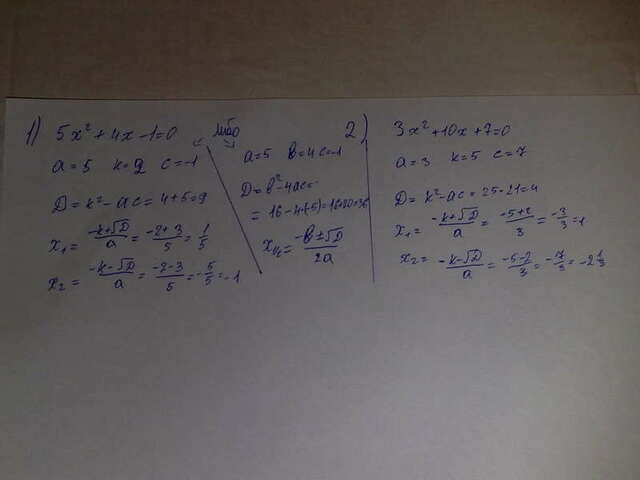 1) 5x² + 4x - 1 = 0
a = 5 k = 2 c = -1
D = k² - ac = 4 + 5 = 9
x₁ = (-k+√D)/a = (-2+3)/5 = 1/5
x₂ = (-k-√D)/a = (-2-3)/5 = -5/5 = -1
либо
a = 5 b = 4 c = -1
D = b² - 4ac =
= 16 - 4·(-5) = 16+20=36
x₁/₂ = (-b±√D)/2a
2) 3x² + 10x + 7 = 0
a = 3 k = 5 c = 7
D = k² - ac = 25 - 21 = 4
x₁ = (-k+√D)/a = (-5+2)/3 = -3/3 = 1
x₂ = (-k-√D)/a = (-5-2)/3 = -7/3 = -2 1/3